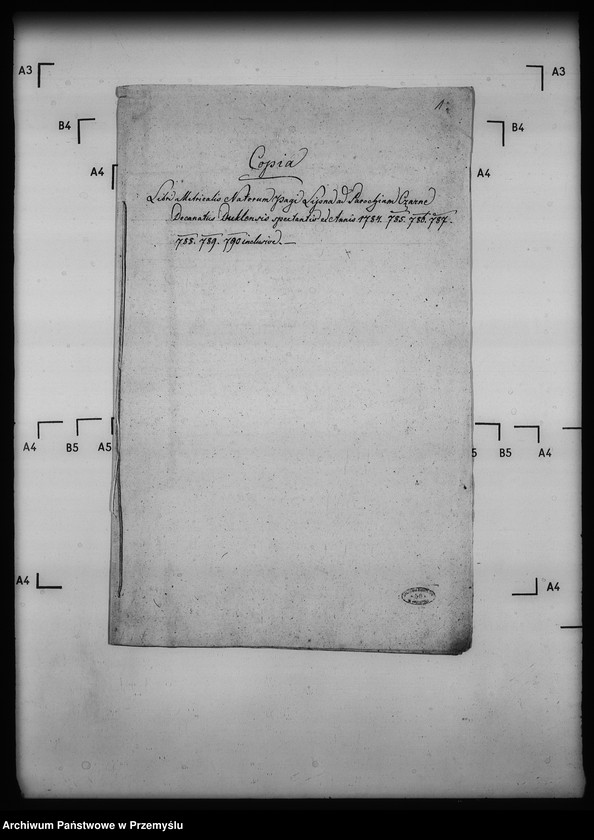 A3
A3
1.
B4
B4
Copia
A4
A4
Libri Metricalis Natorum Pagi Lipna ad Parochiam Czarne
Decanatus Duklensis spectantis ex Annis 1784. 785. 786. 787.
788. 789. 790 inclusive. —
A4
B5
A5
5
B5
A4
A4
A4
Archiwum Państwowe w Przemyślu